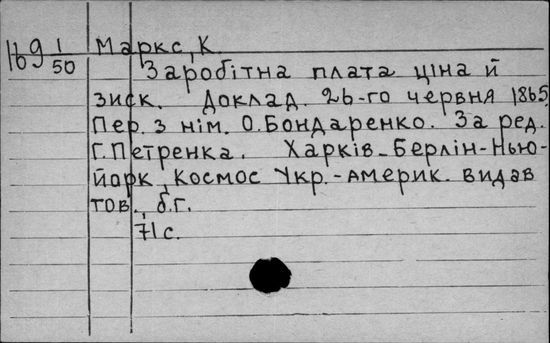 169 1/50 Маркс, К.
Заробітна плата ціна й
зиск. Доклад. 26-го червня 1865,
Пер. з нім. О.Бондаренко. За ред.
Г.Петренка. Харків-Берлін-Нью-
йорк, Космос Укр.-америк. видав
тов., б.г.
71с.